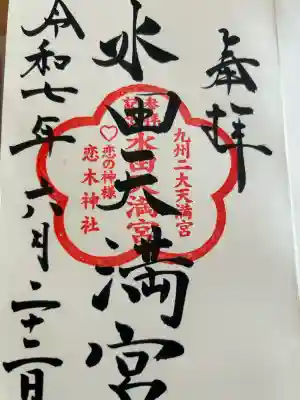 奉拝
九州二大天満宮
参拝記念
水田天満宮
♡恋の神様
恋木神社
水田天満宮
令和七年六月二十二日